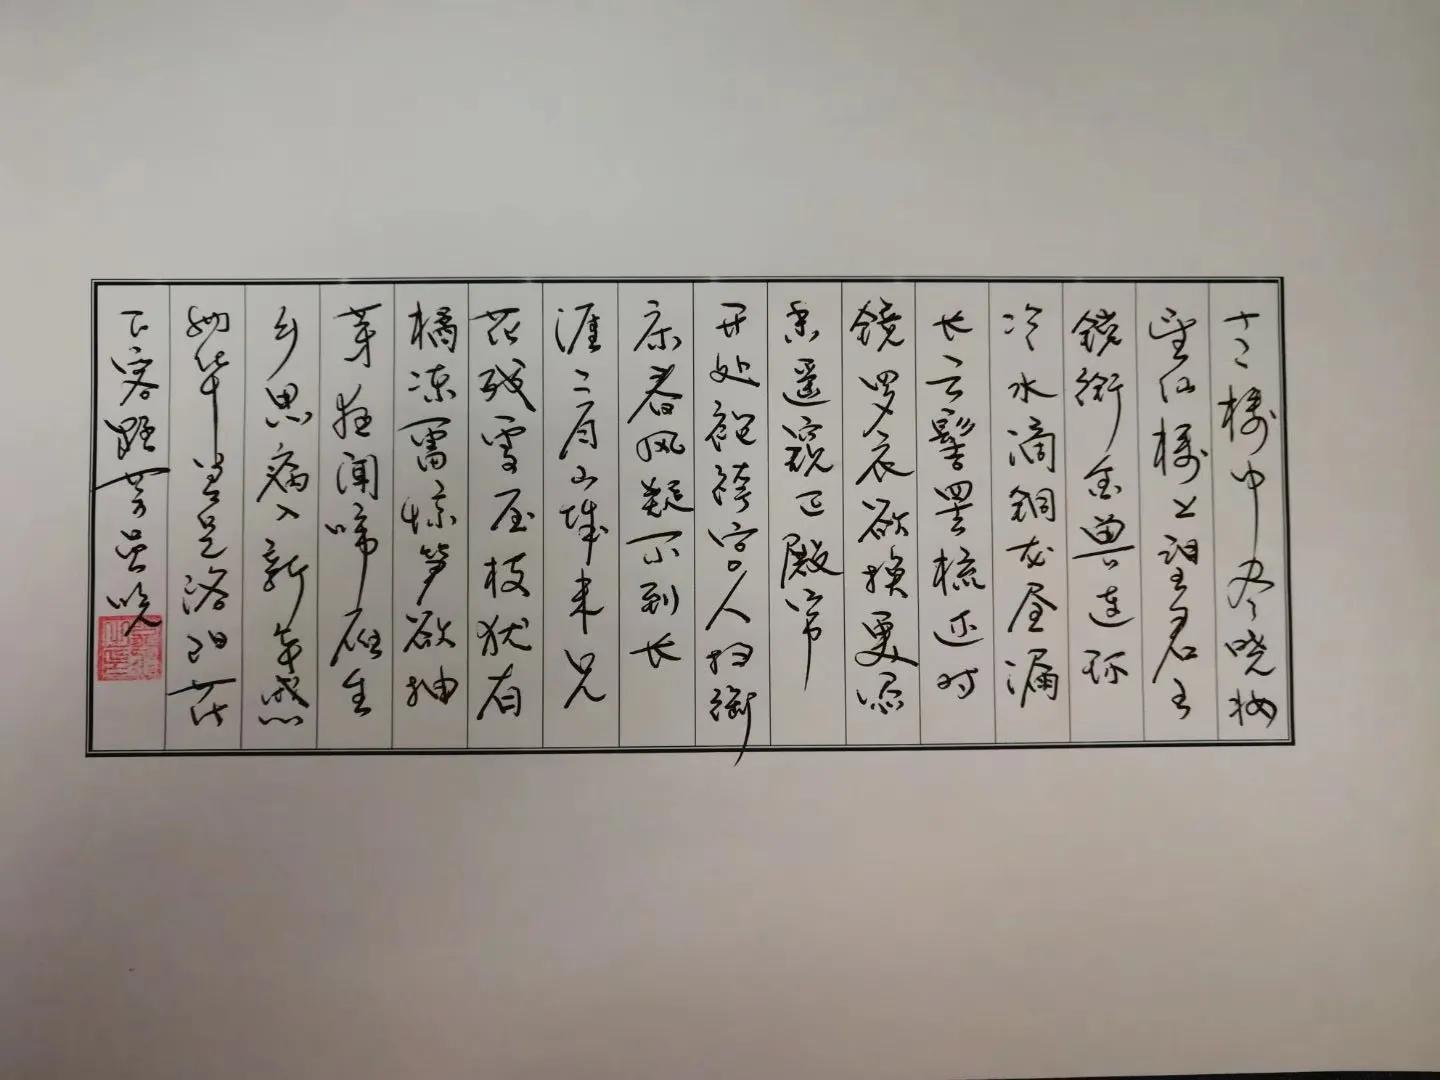 十二楼中尽晓妆
望仙楼上望君王
锁衔金兽连环
冷水滴铜龙昼漏
长云髻罢梳还对
镜罗衣欲换更添
香遥窥正殿帘
开处袍袴宫人扫御
床春风疑不到天
涯二月山城未见
花残雪压枝犹有
橘冻雷惊笋欲抽
芽夜闻归雁生
乡思病入新年感
物华曾是洛阳花
下客野芳虽晚